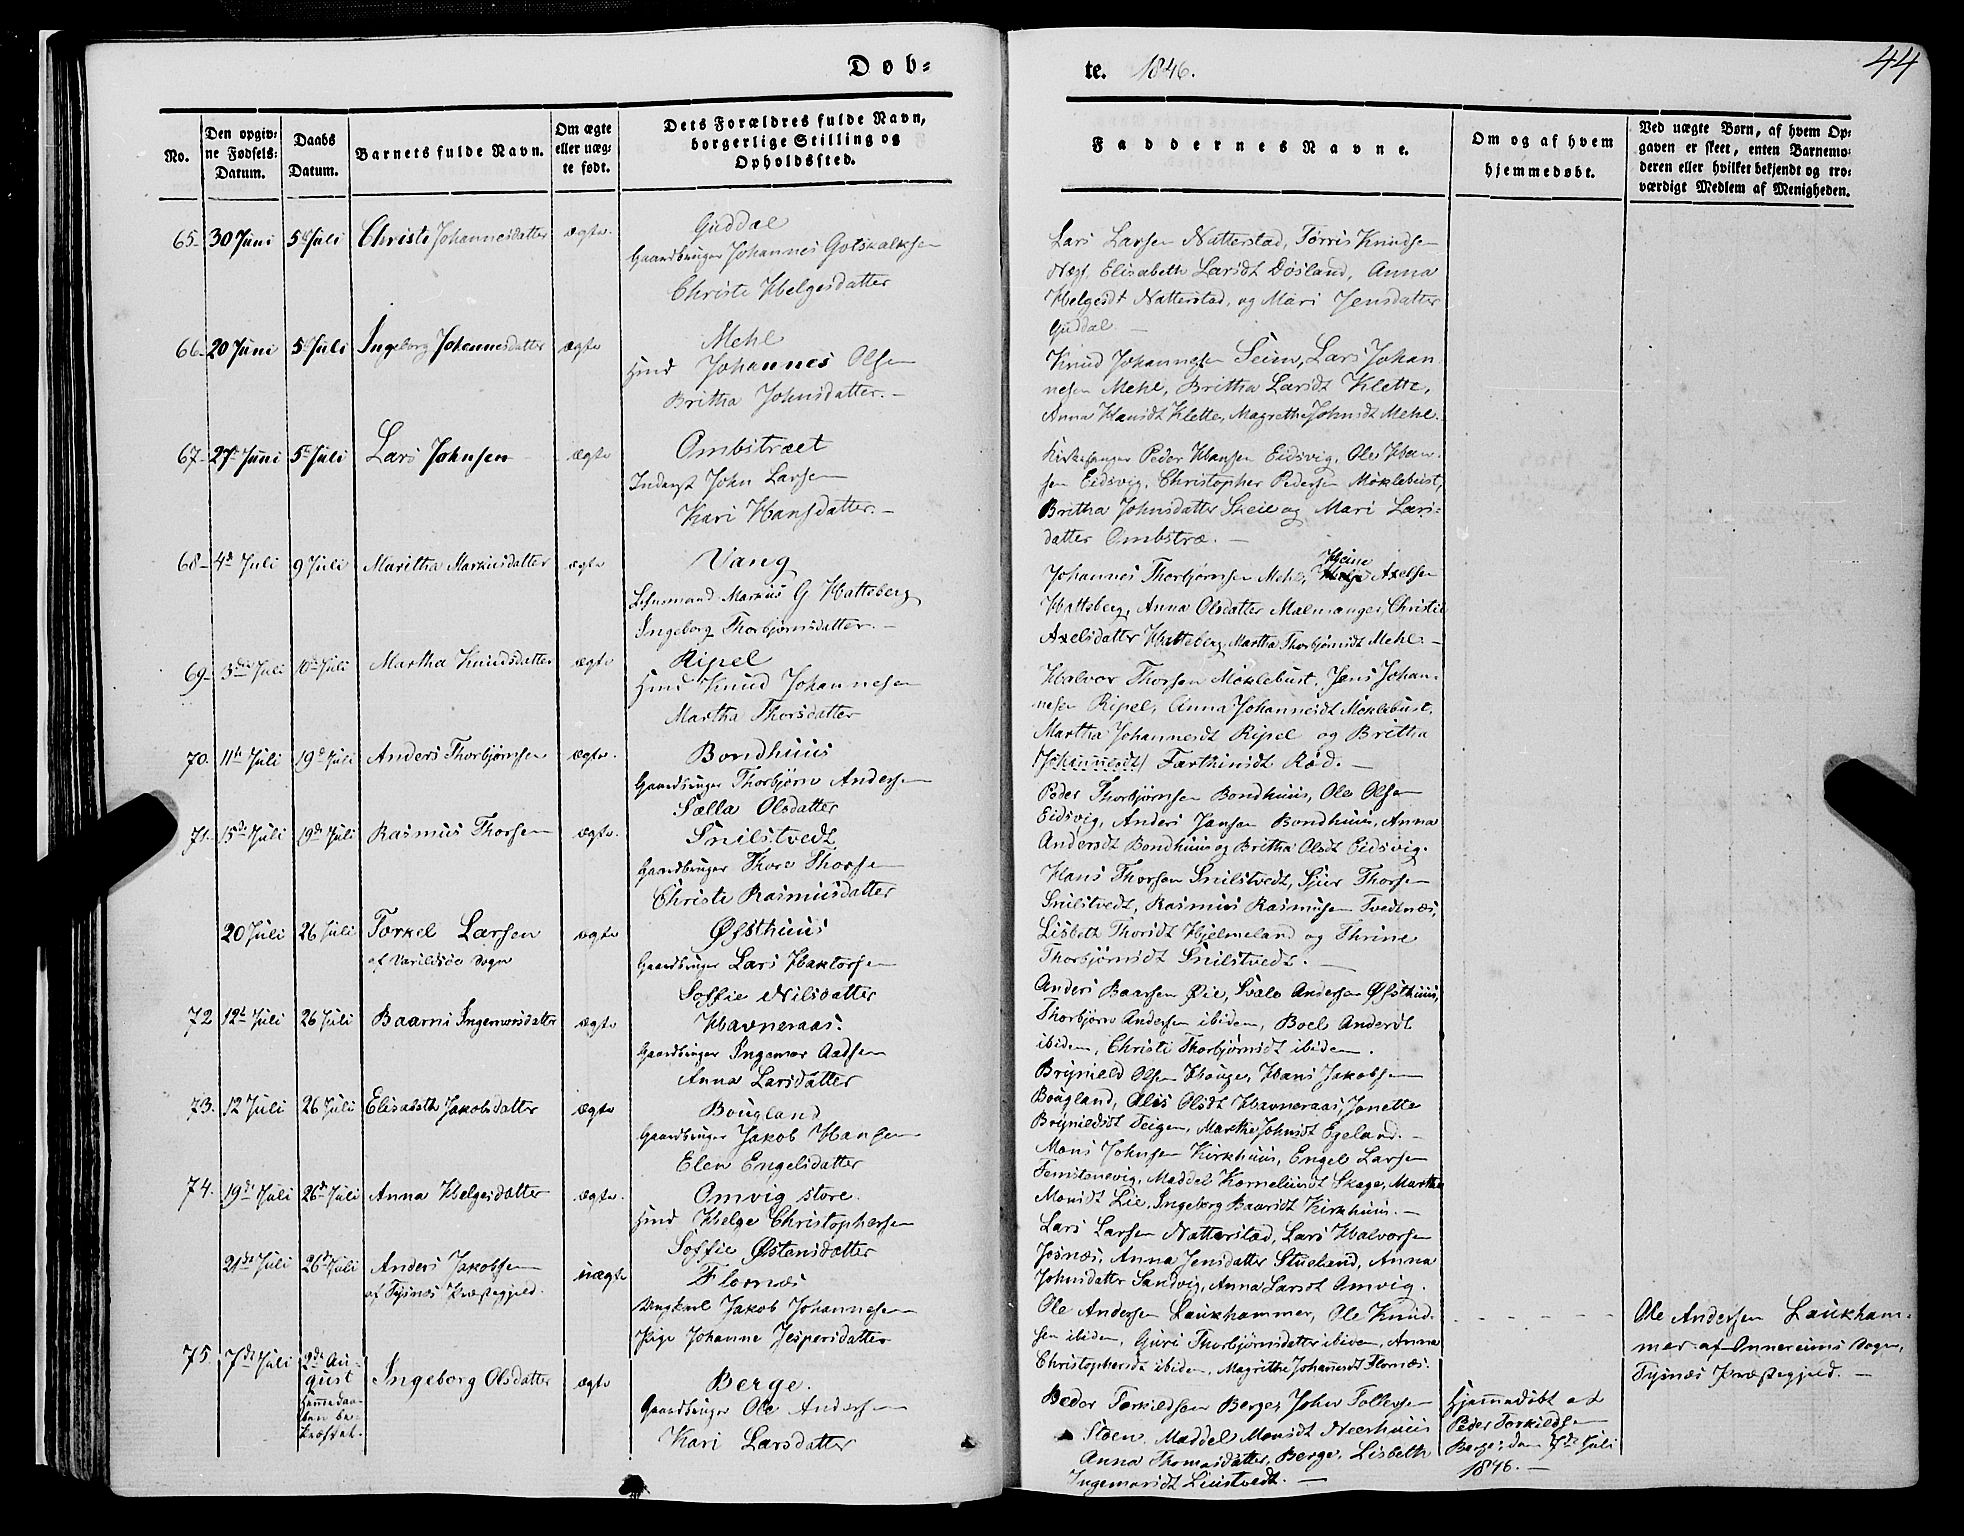 Døb=
te. 1846.
44
No.
Den opgiv=
ne Fødsels=
Datum.
Daabs
Datum.
Barnets fulde Navn.
Om ægte
eller uæg=
te født.
Dets Forældres fulde Navn,
borgerlige Stilling og
Opholdssted.
Faddernes Navne.
Om og af hvem
hjemmedøbt.
Ved uægte Børn, af hvem Op=
gaven er skeet, enten Barnemo=
deren eller hvilket bekjendt og tro=
værdigt Medlem af Menigheden.
65. 30 Juni 5te Juli Christi Johannesdatter ægte
Guddal
Gaardbruger Johannes Gotskalksen
Christi Helgesdatter
Lars Larsen Natterstad, Tørris Knudsen
Næs, Elisabeth Larsdt Døsland, Anna
Helgesdt Natterstad, og Mari Jensdatter
Guddal. —
66. 20 Juni 5te Juli Ingeborg Johannesdatter ægte
Mehl
Hmd Johannes Olsen
Britha Johnsdatter. —
Knud Johannesen Seim, Lars Johan
nesen Mehl, Britha Larsdt Klette,
Anna Hansdt Klette, Magrethe Johnsdt Mehl.
67. 27de Juni 5te Juli Lars Johnsen ægte
Ombstræet
Inderst John Larsen
Kari Hansdatter. —
Kirkesanger Peder Hansen Eidsvig, Ole Han-
sen Eidsvig, Christopher Pedersen Møklebust,
Britha Johnsdatter Skeie og Mari Lars=
datter Ombstræ. —
68. 4de Juli 9 Juli Maritha Markusdatter ægte
Vang
Huusmand Markus G Hatteberg
Ingeborg Thorbjørnsdatter. —
Johannes Thorbjørnsen Mehl, Heine Axelsen
Hatteberg, Anna Olsdatter Malmanger, Christi
Axelsdatter Hatteberg, Martha Thorbjørnsdt Mehl. —
69. 3die Juli 10de Juli Martha Knudsdatter ægte
Ripel
Hmd Knud Johannesen
Martha Thorsdatter
Halvor Thorsen Møklebust, Jens Johan-
nesen Ripel, Anna Johannesdt Møklebust,
Martha Johannesdt Ripel og Britha
(Johannesdt) Farthinsdt Rød. —
70. 11te Juli 19de Juli Anders Thorbjørnsen ægte
Bondhuus
Gaardbruger Thorbjørn Andersen
Sælla Olsdatter
Peder Thorbjørnsen Bondhuus, Ole Olsen
Eidsvig, Anders Jansen Bondhuus, Anna
Andersdt Bondhuus og Britha Olsdt Eidsvig.
71. 15de Juli 19de Juli Rasmus Thorsen ægte
Snilstvedt
Gaardbruger Thore Thorsen
Christi Rasmusdatter
Hans Thorsen Snilstvedt, Sjur Thorsen
Snilstvedt, Rasmus Rasmusen Tvedtnæs,
Lisbeth Thorsdt Hjelmeland og Thrine
Thorbjørnsdt Snilstvedt. —
20 Juli 26 Juli Torkel Larsen ægte
af Varildsøe Sogn
Østhuus
Gaardbruger Lars Haktorsen
Soffie Nilsdatter
Anders Baarsen Øie, Svale Andersen Østhuus,
Thorbjørn Andersen ibidem, Boel Andersdt
ibidem, Christi Thorbjørnsdt ibidem.
72 12te Juli 26 Juli Baarni Ingemarsdatter ægte
Havneraas.
Gaardbruger Ingemar Aadsen
Anna Larsdatter
Brynield Olsen Hauge, Hans Jakobsen
Bougland, Alis Olsdt Havneraas, Jonette
Brynieldsdt Teigen, Marthe Johnsdt Egeland. —
73. 12 Juli 26 Juli Elisabeth Jakobsdatter ægte
Bougland
Gaardbruger Jakob Hansen
Elen Engelsdatter
Mons Johnsen Kirkhuus, Engel Larsen
Femstenevig, Maddel Korneliusdt Skage, Marthe
Monsdt Lie, Ingeborg Baarsdt Kirkhuus. —
74. 19de Juli 26de Juli Anna Helgesdatter ægte.
Omvig store.
Hmd Helge Christophersen
Soffie Østensdatter
Lars Larsen Natterstad, Lars Halvorsen
Josnæs, Anna Jensdatter Stueland, Anna
Johnsdatter Sandvig, Anna Larsdt Omvig.
21de Juli 26de Juli Anders Jakobsen uægte
af Tysnæs Præstegjeld.
Flornæs
Ungkarl Jakob Johannesen
Pige Johanne Jespersdatter
Ole Andersen Laukhammer, Ole Knud-
sen ibidem, Guri Thorbjørnsdatter ibidem, Anna
Christophersdt ibidem, Magrithe Johannsdt Flornæs.
Ole Andersen Laukham-
mer af Onnereims Sogn,
Tysnæs Præstegjeld. —
75. 7de Juli 2de Au-
gust
Hjemmedaa-
ben be-
kræftet.
Ingeborg Olsdatter ægte
Berge.
Gaardbruger Ole Andersen
Kari Larsdatter
Peder Torkildsen Berge, John Tollevsen
Steen, Maddel Monsdt Neerhuus
Anna Thomasdatter Berge, Lisbeth
Ingemarsdt Linstvedt. —
Hjemmedøbt af
Peder Torkildsen
Berge, den 7de Juli
1846. —